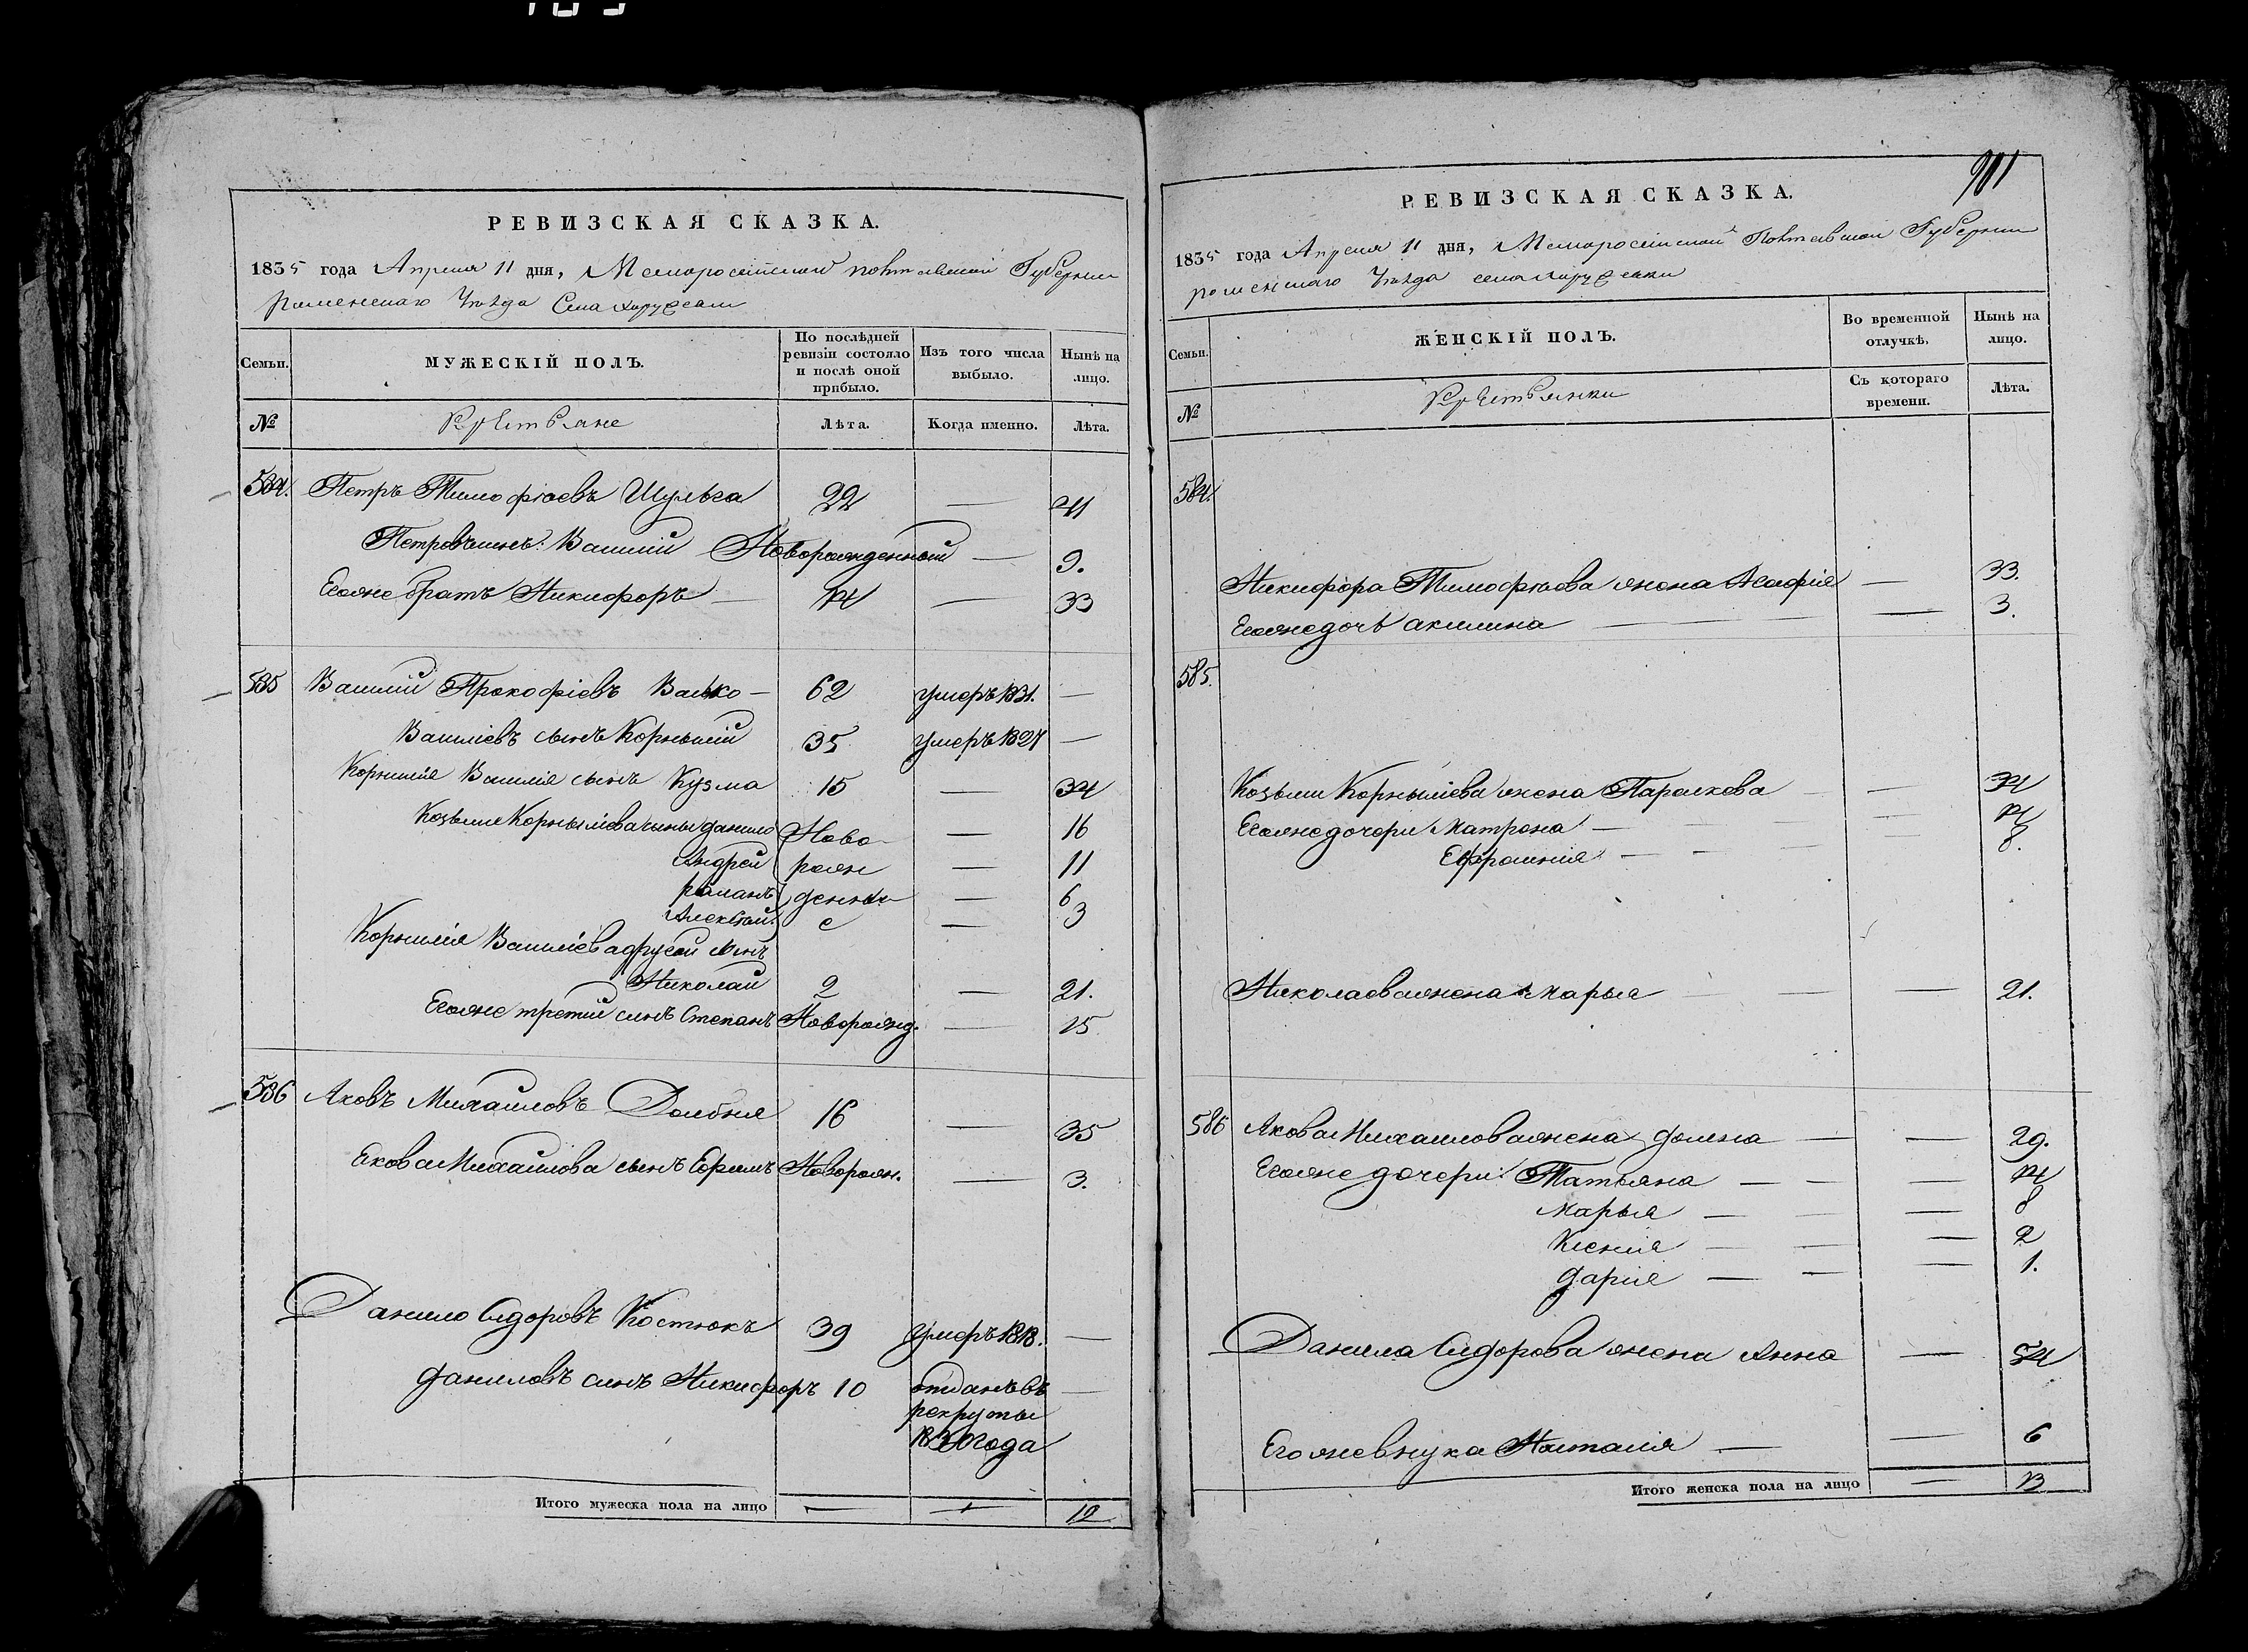 РЕВИЗСКАЯ СКАЗКА.
1835 года Апреля 11 дня, Малоросійской Полтавской Губерніи
Роменскаго Уѣзда Села
Семьи.
МУЖЕСКІЙ ПОЛЪ.
По послѣдней ревизіи состояло и послѣ оной прибыло.
Изъ того числа выбыло.
Нынѣ на лицо.
№
Крестьяне
Лѣта.
Когда именно.
Лѣта.
584. Петръ Тимофѣевъ Шульга 22 — 41
Петровъ сынъ: Василій Новорожденной — 9.
Егоже братъ Никифоръ — 14 — 33
585 Василій Прокофіевъ Валко — 62 умеръ 1831. —
Василіевъ сынъ Корнилій 35 умеръ 1827 —
Корнилія Василія сынъ Кузма 15 — 34
Козьми Корнилієва сыны данило Ново — 16
Андрей рожж — 11
романъ денны — 6
Алексѣй е — 3
Корнилія Василіева другой сынъ
Николай 2 — 21.
Егоже третій сынъ Степанъ Новорожд. — 15
586 Яковъ Михайловъ Долбня 16 — 35
Якова Михайлова сынъ Ефимъ Новорож. — 3.
Данило Сидоровъ Костюкъ 39 умеръ 1818. —
даниловъ синъ Никифоръ 10 отданъ въ —
рекруты
1830 года
Итого мужеска пола на лицо — — 12
911
РЕВИЗСКАЯ СКАЗКА.
1835 года Апреля 11 дня, Малоросійской Полтавской Губерніи
роменскаго Уѣзда села
Семьи.
ЖЕНСКІЙ ПОЛЪ.
Во временной отлучкѣ.
Нынѣ на лицо.
№
Крестьянки
Съ котораго времени.
Лѣта.
584.
Никифора Тимофѣева жена Агафія — 33.
Егоже дочь акилина — 3.
585.
Козьми Корнилієва жена Параскева — 34
Егоже дочери Матрона — 14
Ефросинія — 8.
Николаева жена марья — 21.
586 Якова Михаилова жена домна — 29.
Егоже дочери: Татьяна — 14
Марья — 8
Ксенія — 2
дарія — 1.
Данила Сидорова жена Анна — 54
Егоже внука Наталія — 6
Итого женска пола на лицо — 13